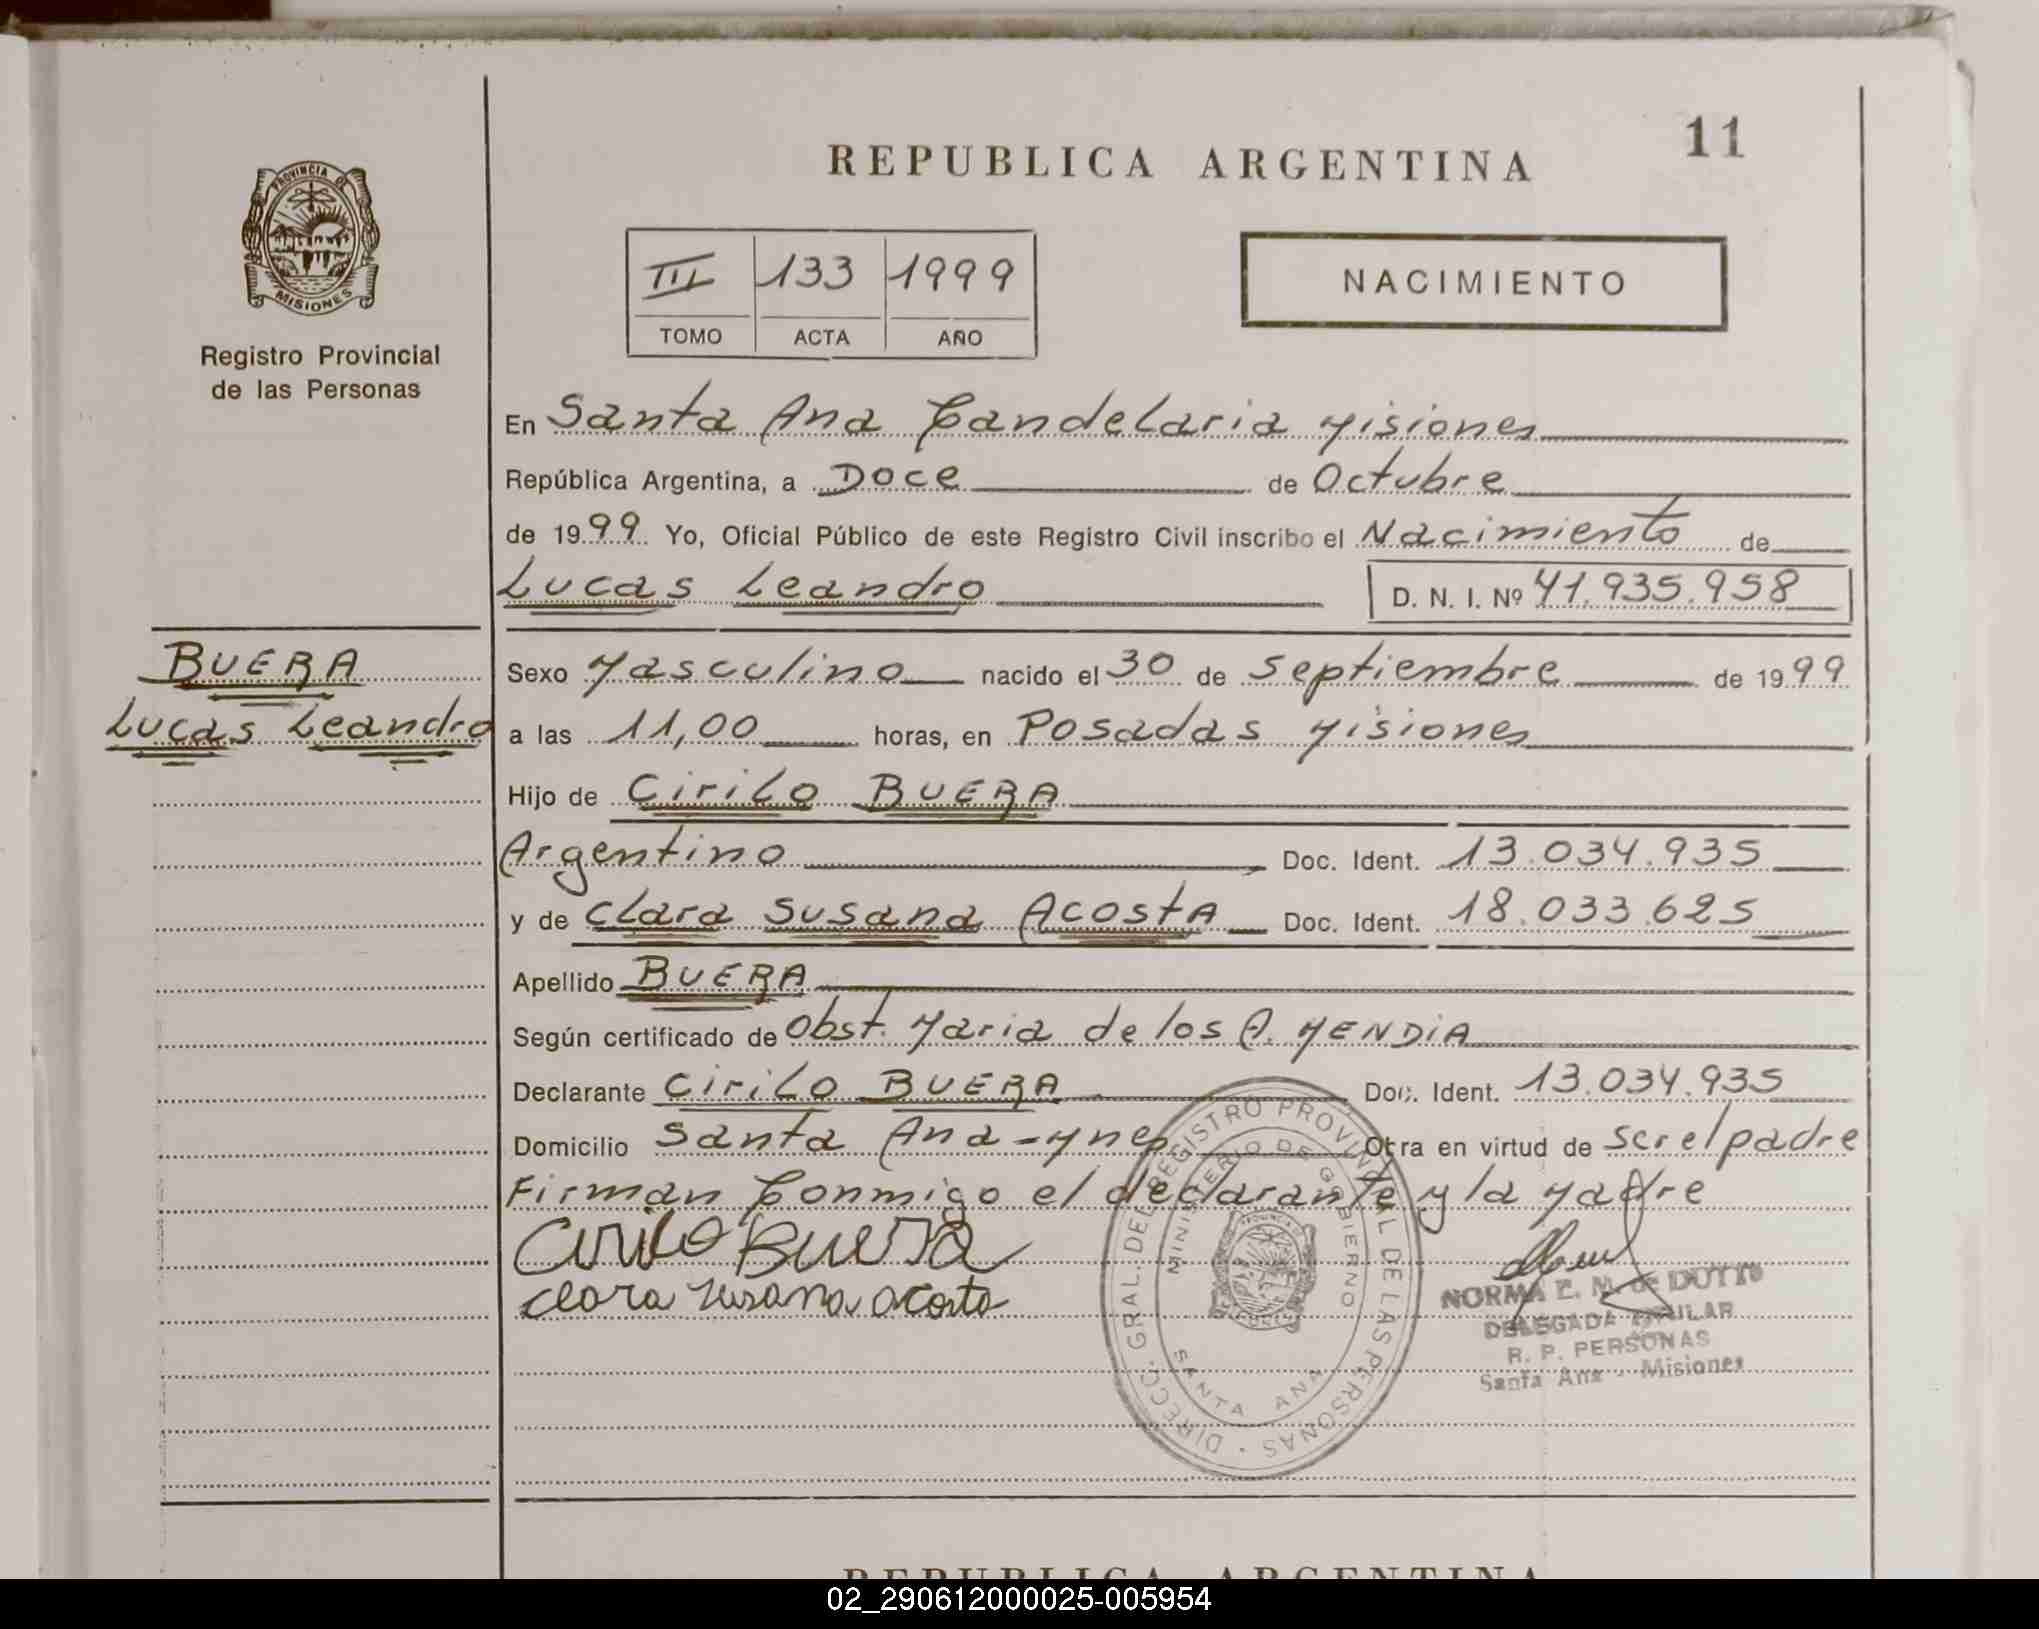 11
REPUBLICA ARGENTINA
PROVINCIA DE
MISIONES
III 133 1999
TOMO ACTA AÑO
NACIMIENTO
Registro Provincial
de las Personas
En Santa Ana Candelaria Misiones
República Argentina, a Doce de Octubre
de 1999 Yo, Oficial Público de este Registro Civil inscribo el Nacimiento de
Lucas Leandro D. N. I. Nº 41.935.958
BUERA
Lucas Leandro
Sexo Masculino nacido el 30 de Septiembre de 1999
a las 11,00 horas, en Posadas Misiones
Hijo de Cirilo BUERA
Argentino Doc. Ident. 13.034.935
y de Clara Susana ACOSTA Doc. Ident. 18.033.625
Apellido BUERA
Según certificado de Obst. Maria de los A. MENDIA
Declarante Cirilo BUERA Doc. Ident. 13.034.935
Domicilio Santa Ana - Mnes Obra en virtud de ser el padre
Firman Conmigo el declarante y la Madre
Cirilo Buera
Clara Susana Acosta
DIRECC. GRAL. DEL REGISTRO PROVINCIAL DE LAS PERSONAS
MINISTERIO DE GOBIERNO
SANTA ANA
NORMA E. M. de DOTTO
DELEGADA TITULAR
R. P. PERSONAS
Santa Ana - Misiones
REPUBLICA ARGENTINA
02_290612000025-005954